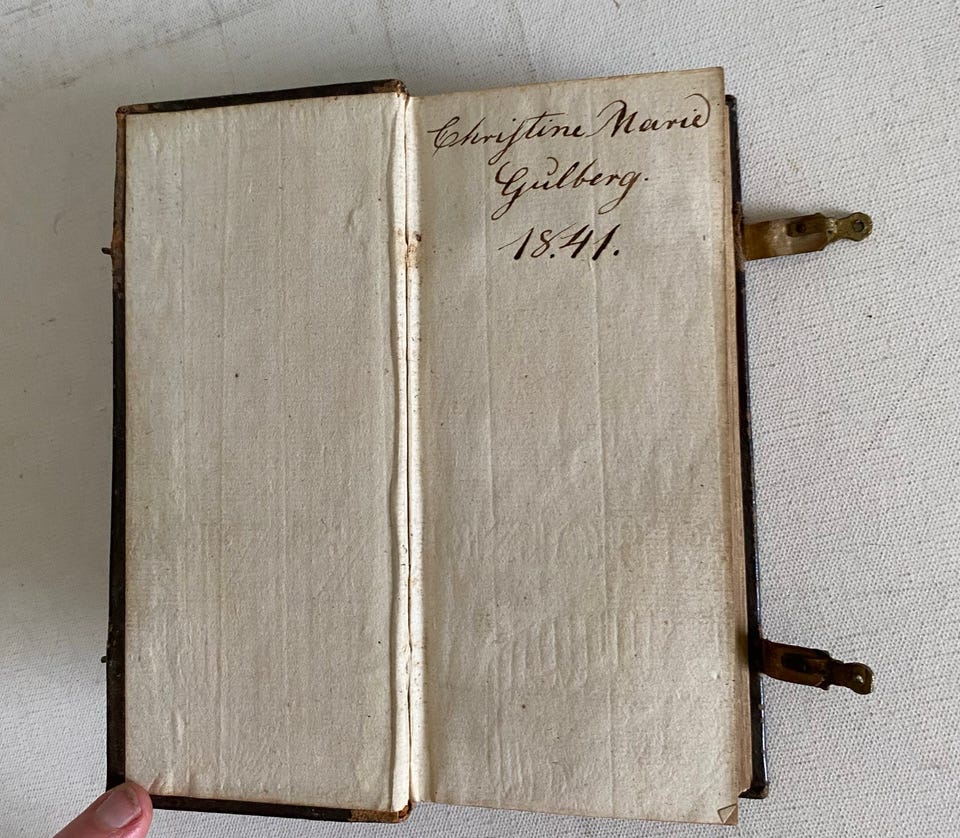 Christine Marie
Gulberg.
18.41.